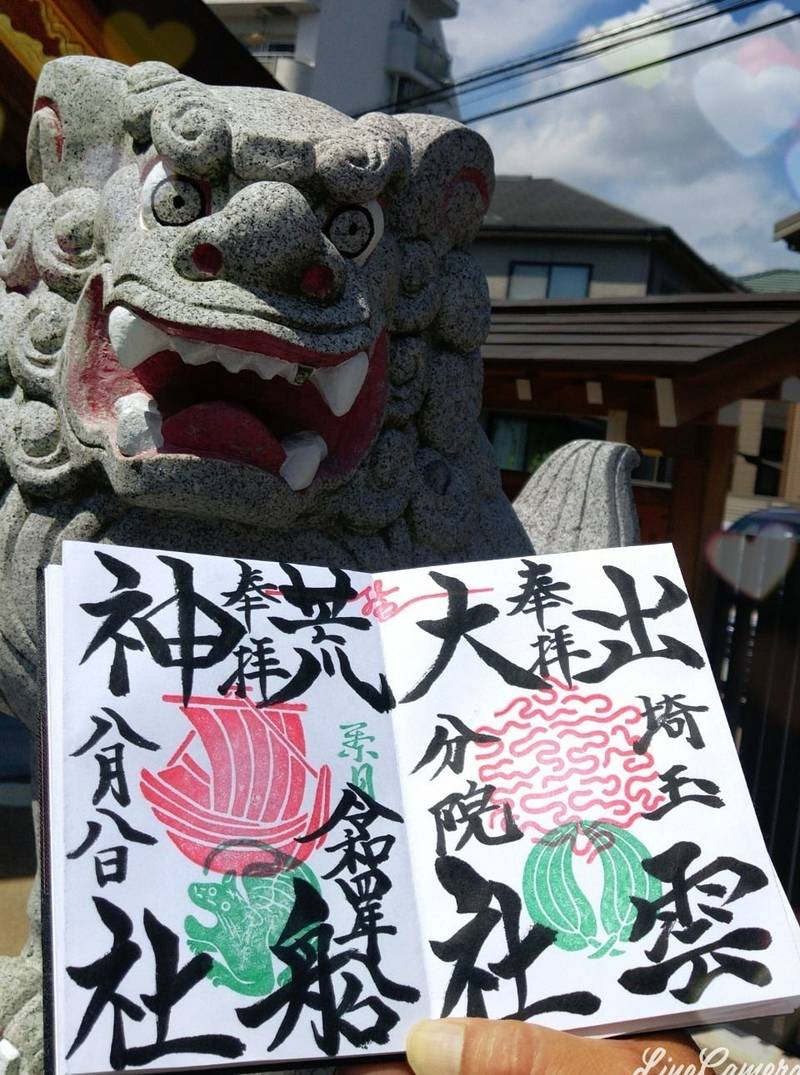 出雲
埼玉
奉拝
大社
分院
荒船
葉月
令和四年
奉拝
神社
八月八日
LineCamera